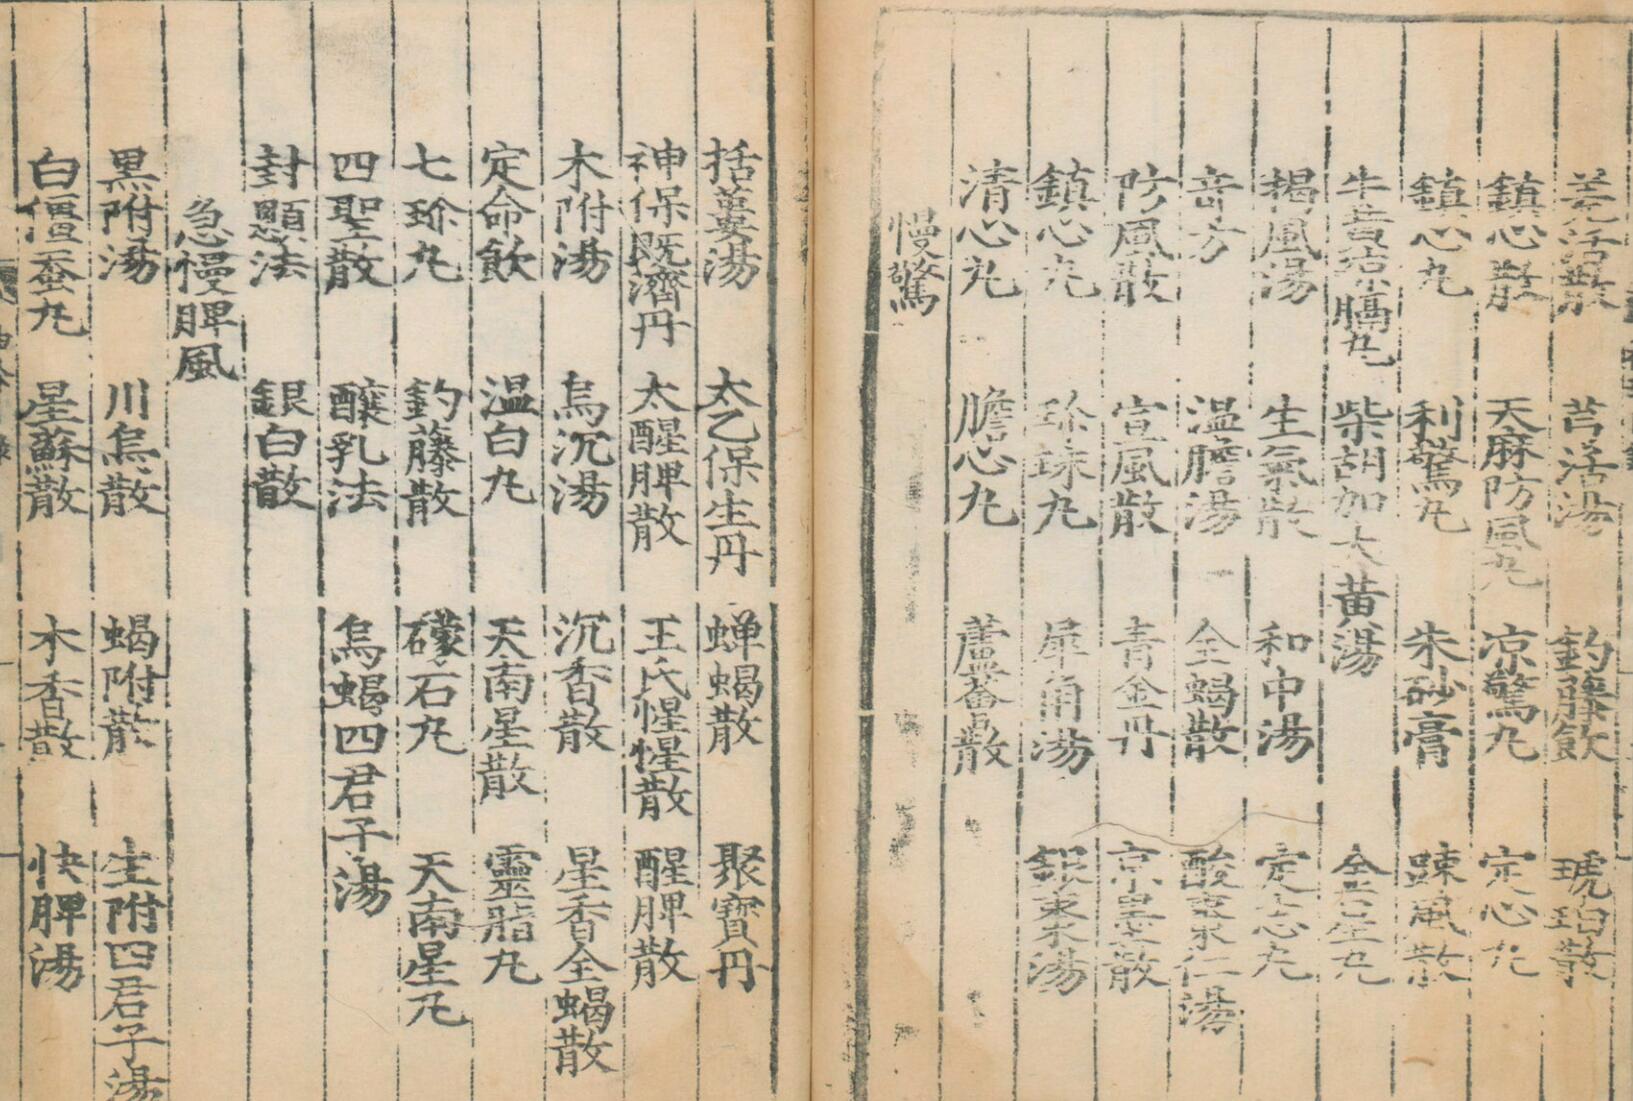 羌活散 芎活湯 釣藤飲 琥珀散
鎮心散 天麻防風丸 凉驚丸 定心丸
鎮心丸 利驚丸 朱砂膏 踈風散
牛黃凉膈丸 柴胡加大黃湯 全星丸
揭風湯 生氣散 和中湯 定志丸
竒方 温膽湯 全蝎散 酸棗仁湯
防風散 宣風散 青金丹 京墨散
鎮心丸 珍珠丸 犀角湯 銀棗湯
清心丸 膽心丸 蘆薈散
慢驚
括蔞湯 太乙保生丹 蟬蝎散 聚寶丹
神保既濟丹 太醒脾散 王氏惺惺散 醒脾散
木附湯 烏沉湯 沉香散 星香全蝎散
定命飲 温白丸 天南星散 靈脂丸
七珎丸 釣藤散 礞石丸 天南星丸
四聖散 釀乳法 烏蝎四君子湯
封顖法 銀白散
急慢脾風
黑附湯 川烏散 蝎附散 生附四君子湯
白僵蚕丸 星蘇散 木香散 快脾湯